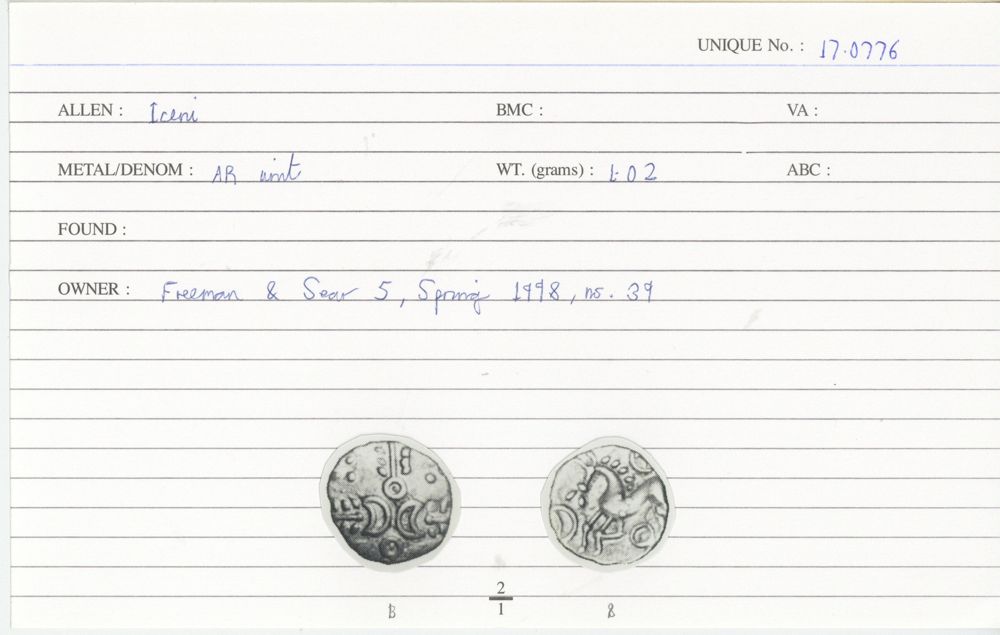 UNIQUE No. : 17.0776
ALLEN : Iceni BMC : VA :
METAL/DENOM : AR unit WT. (grams) : 1.02 ABC :
FOUND :
OWNER : Freeman & Sear 5, Spring 1998, no. 39
2
B 1 8